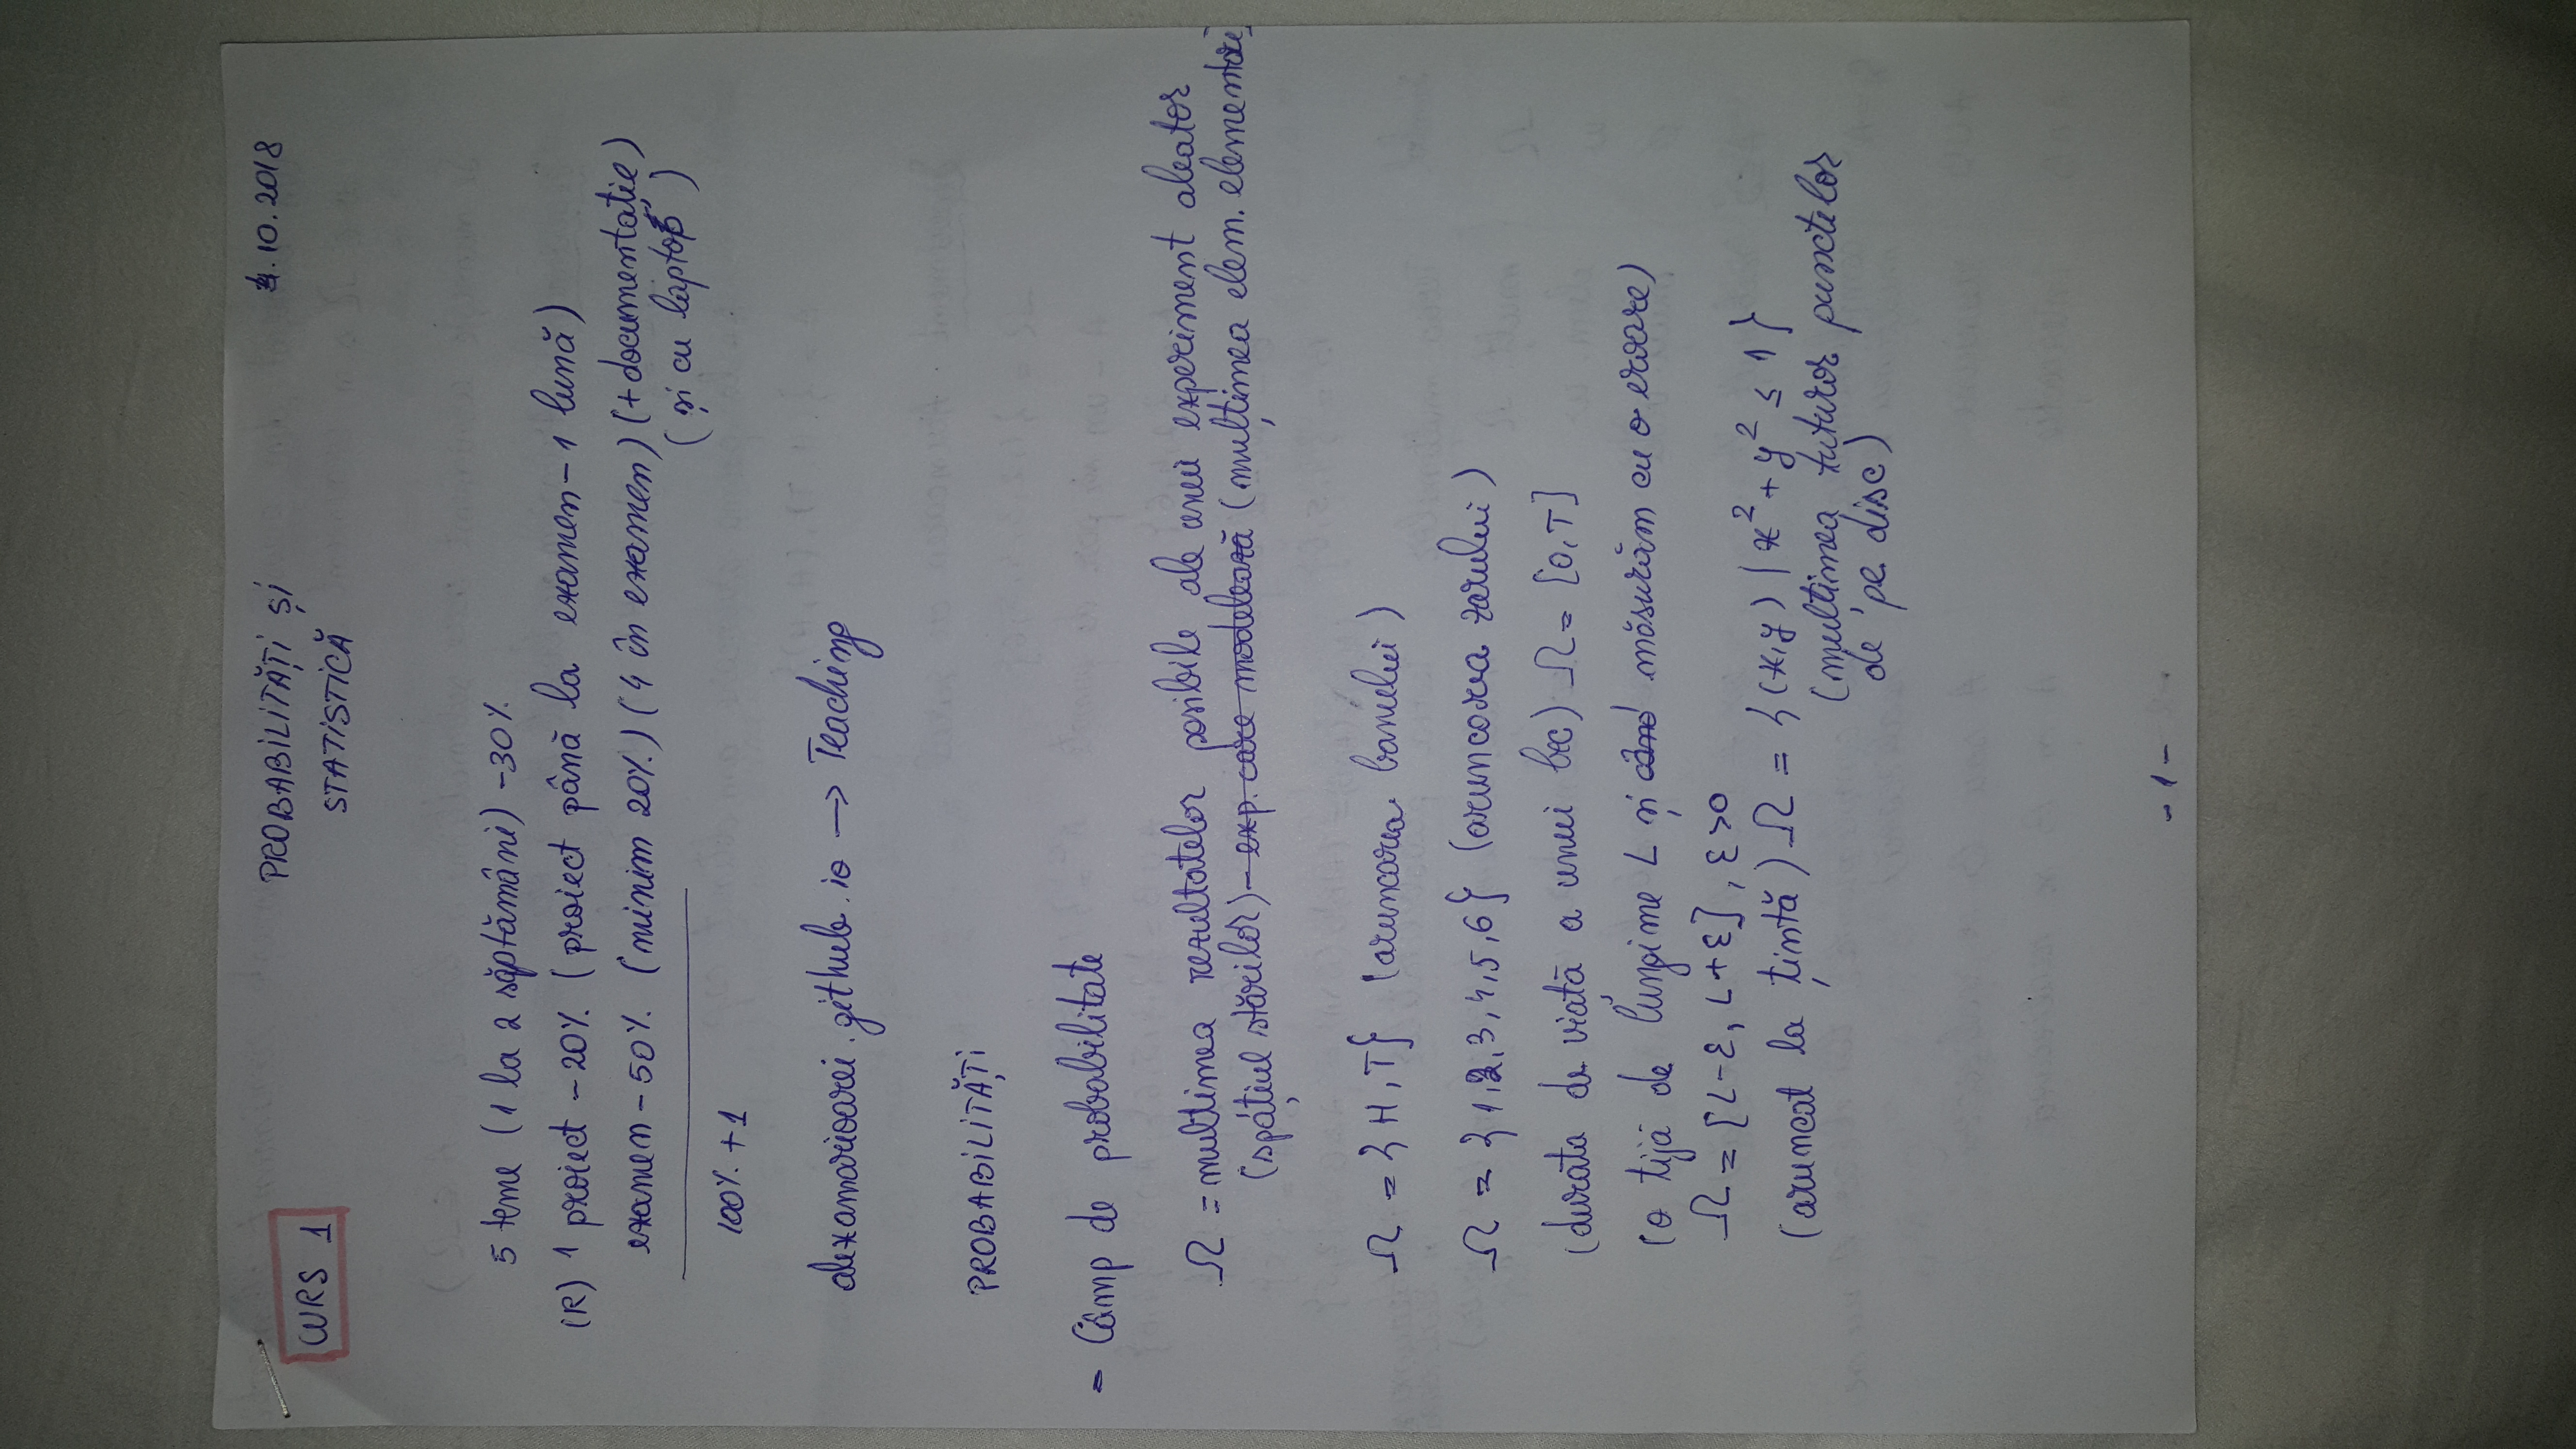 CURS 1
PROBABILITĂȚI ȘI
STATISTICĂ
4.10.2018
5 teme (1 la 2 săptămâni) - 30%
(R) 1 proiect - 20% (proiect până la examen - 1 lună)
examen - 50% (minim 20%) (4 în examen) (+ documentație)
(și cu laptop)
100% + 1
alexamarioarei.github.io → Teaching
PROBABILITĂȚI
- Câmp de probabilitate
Ω = mulțimea rezultatelor posibile ale unui experiment aleator
(spațiul stărilor) - exp. care modelează (mulțimea elem. elementare)
Ω = {H, T} (aruncarea banului)
Ω = {1, 2, 3, 4, 5, 6} (aruncarea zarului)
(durata de viață a unui bec) Ω = [0, T]
(o tijă de lungime L și când măsurăm cu o eroare)
Ω = [L-ε, L+ε], ε>0
(aruncat la țintă) Ω = {(x,y) | x² + y² ≤ 1}
(mulțimea tuturor punctelor
de pe disc)
- 1 -